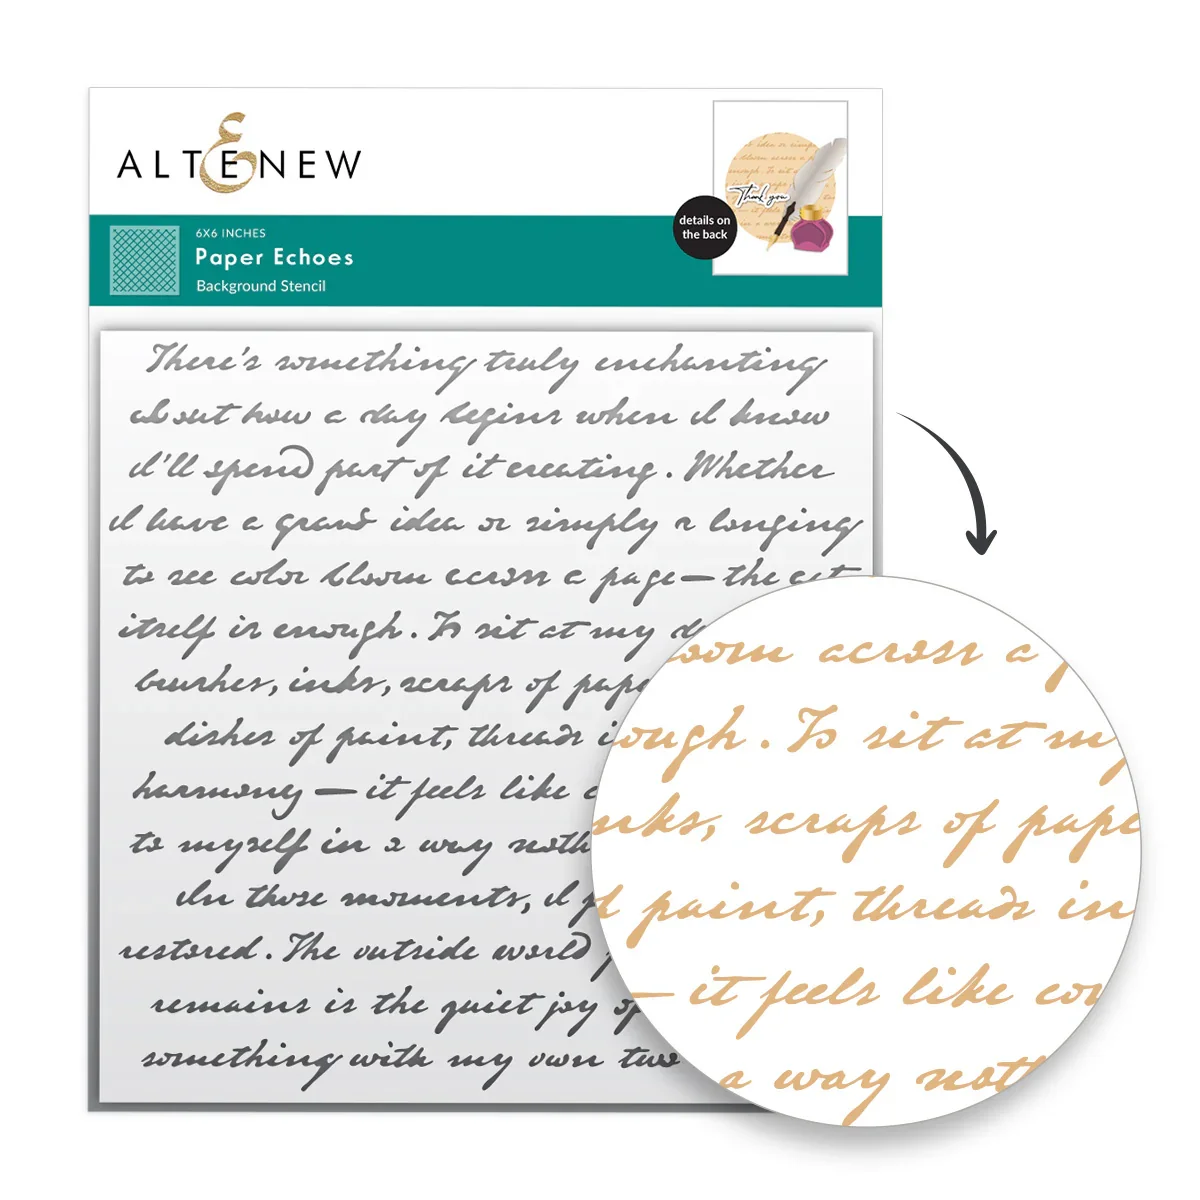 ALTENEW
6X6 INCHES
Paper Echoes
Background Stencil
details on
the back
Thank you
There's something truly enchanting
about how a day begins when I know
I'll spend part of it creating. Whether
I have a grand idea or simply a longing
to see color bloom across a page—the act
itself is enough. To sit at my
brushes, inks, scraps of pape
dishes of paint, threads i
harmony—it feels like c
to myself in a way noth
In those moments, I f
restored. The outside world
remains is the quiet joy of
something with my own two
loom across a p
ough. To sit at my
nks, scraps of pape
f paint, threads in
— it feels like co
a way noth